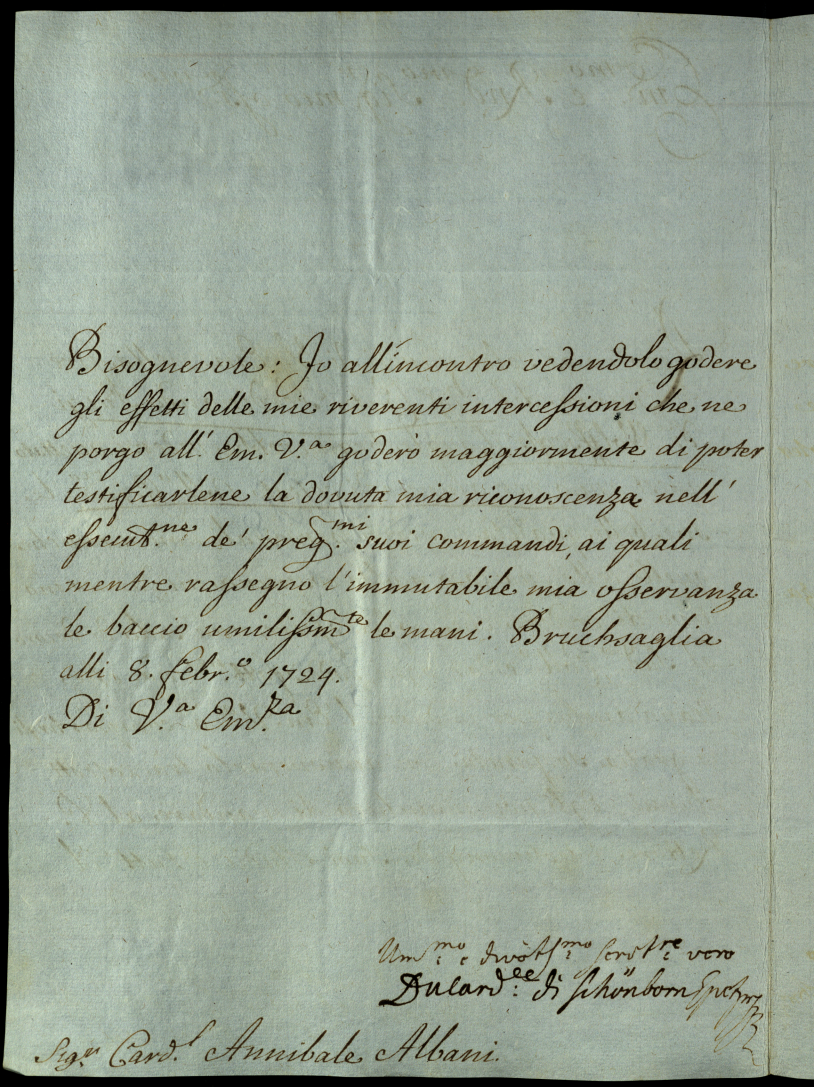 Bisognevole: Jo all'incontro vedendolo godere
gli effetti delle mie riverenti intercessioni che ne
porgo all'. Em. V.a goderò maggiormente di poter
testificarlene la dovuta mia riconoscenza nell'
essecut.ne de' preg.mi suoi commandi, ai quali
mentre rassegno l'immutabile mia osservanza
le baccio umilissm.te le mani. Bruchsaglia
alli 8. febr.o 1724.
Di V.a Em.za
Um.mo e divot.mo serv.re vero
Card.le di Schönborn
Sig.r Card.l Annibale Albani.